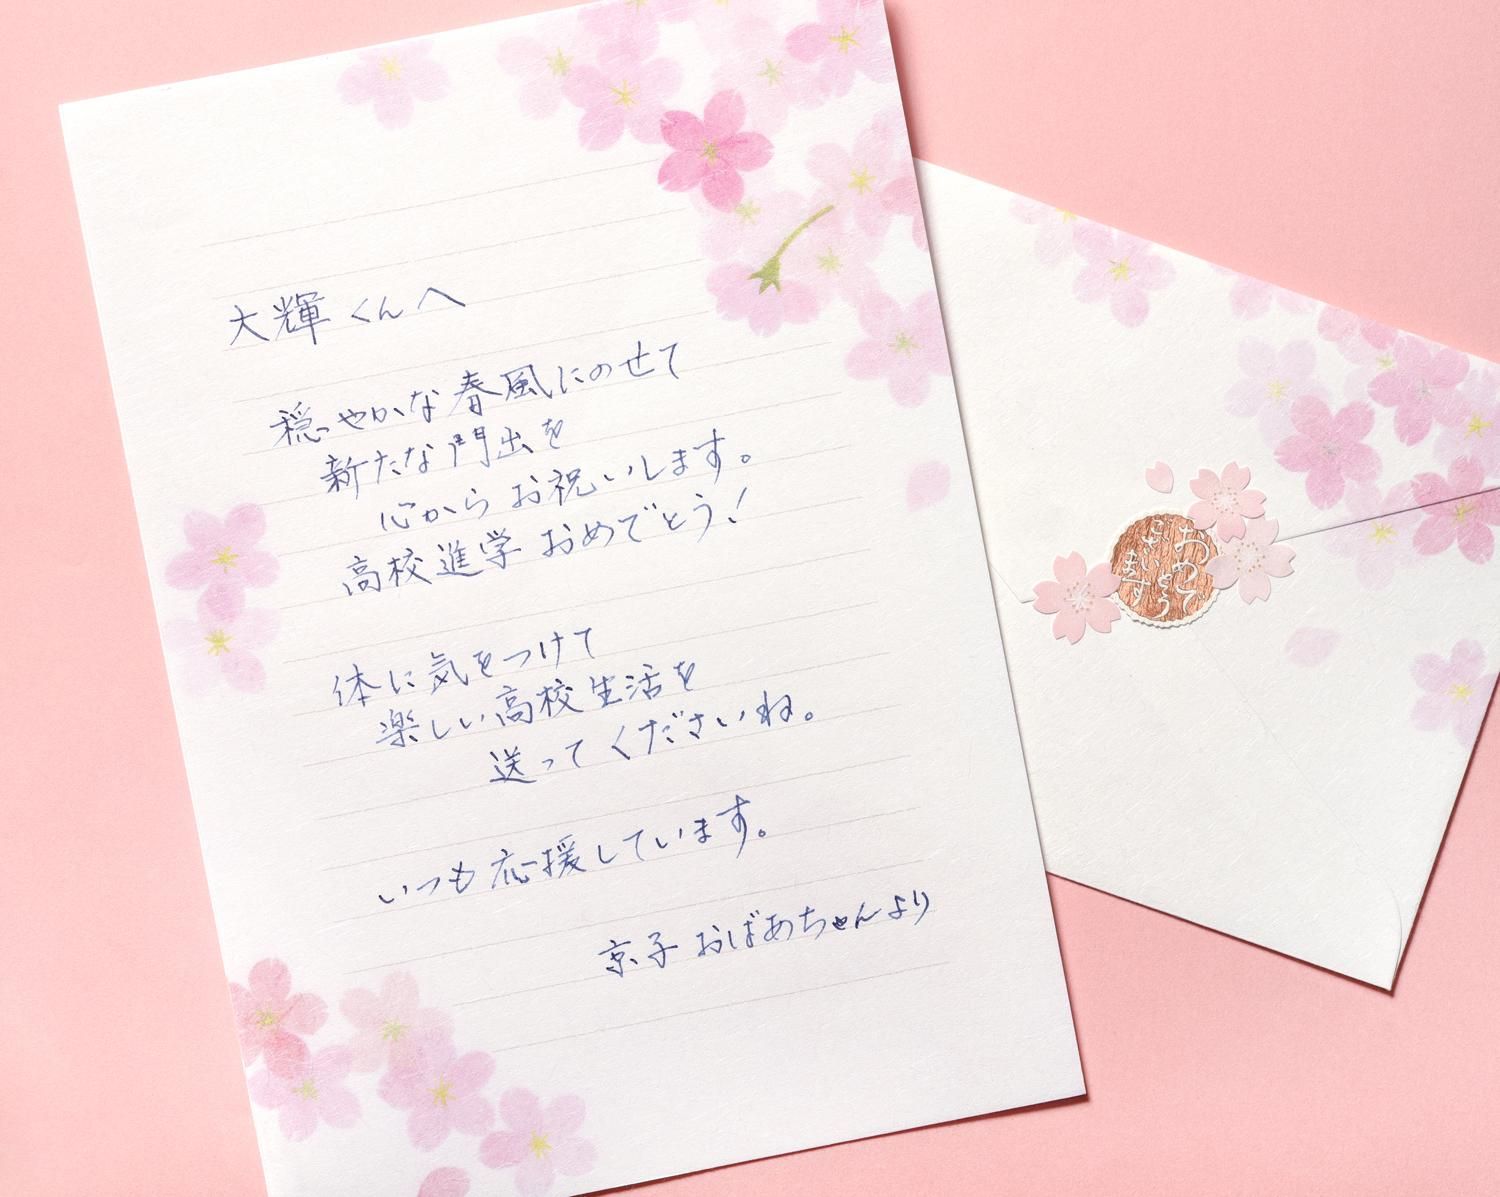 大輝くんへ
穏やかな春風にのせて
新たな門出を
心からお祝いします。
高校進学おめでとう!
体に気をつけて
楽しい高校生活を
送ってくださいね。
いつも応援しています。
京子おばあちゃんより
おめでとう
ございます